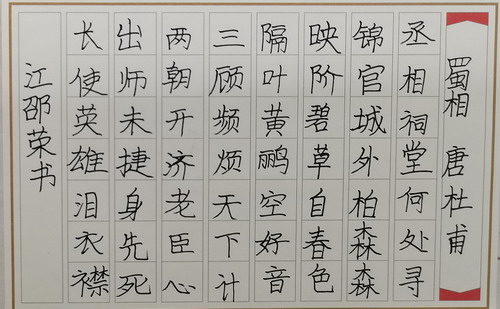 蜀相 唐 杜甫
丞相祠堂何处寻
锦官城外柏森森
映阶碧草自春色
隔叶黄鹂空好音
三顾频烦天下计
两朝开济老臣心
出师未捷身先死
长使英雄泪衣襟
江邵荣书